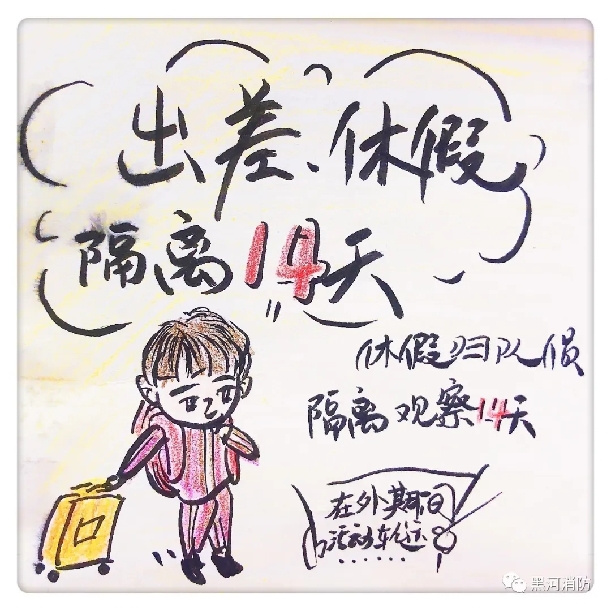 出差、休假
隔离14天
休假归队员
隔离观察14天
在外期间
活动轨迹
黑河消防